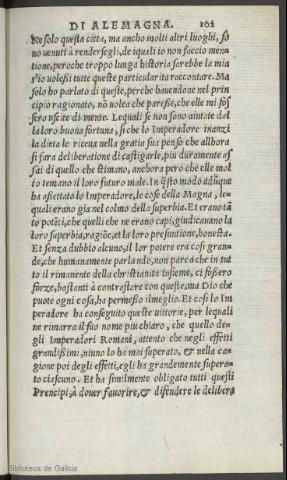 DI ALEMAGNA. 102
Ne solo questa citta, ma ancho molti altri luoghi, so
no venuti à rendersegli, de iquali io non faccio men-
tione, peroche troppo lunga historia sarebbe la mia
s'io volessi tutte queste particularita raccontare. Ma
solo ho parlato di queste, perche hauendone nel prin-
cipio ragionato, nõ volea che paresse, che elle mi fos-
sero uscite di mente. Lequali se non sono aiutate dal
la loro buona fortuna, si che lo Imperadore inanzi
la dieta le riceua nella gratia sua penso che allhora
si fara deliberatione di castigarle, piu duramente as
sai di quello che stimano, anchora pero che elle mol
to temano il loro futuro male. In q̃sto modo adũque
ha assettato lo Imperadore, le cose della Magna, le-
quali erano gia nel colmo della superbia. Et erano tã
to potẽti, che quelli che ne erano capi, giudicauano la
loro superbia, ragiõe, et la loro presuntione, honesta.
Et senza dubbio alcuno, il lor potere era cosi gran-
de, che humanamente parlando, non parea che in tut
to il rimanente della christianita insieme, ci fossero
forze, bastanti à contrastare con queste, ma Dio che
puote ogni cosa, ha permesso il meglio. Et cosi lo Im
peradore ha conseguito queste uittorie, per lequali
ne rimarra il suo nome piu chiaro, che quello de-
gli Imperadori Romani, attento che negli effetti
grandissimi, niuno lo ha mai superato, & nella ca-
gione poi degli effetti, egli ha grandemente supera-
to ciascuno. Et ha similmente obligato tutti questi
Prencipi, à douer fauorire, & difendere le delibera
Biblioteca de Galicia